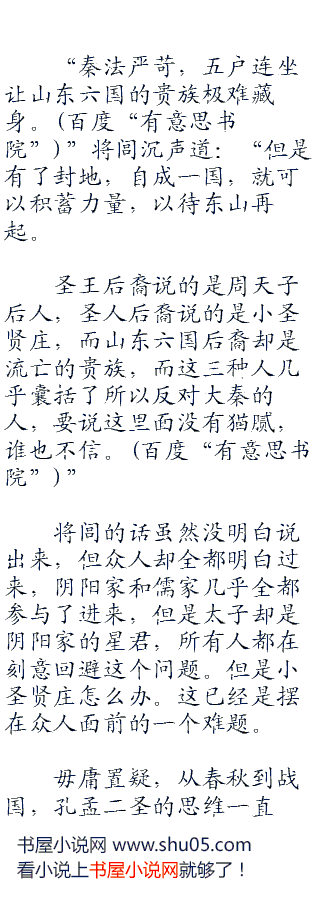 “秦法严苛，五户连坐
让山东六国的贵族极难藏
身。(百度“有意思书
院”)”将闾沉声道：“但是
有了封地，自成一国，就可
以积蓄力量，以待东山再
起。
圣王后裔说的是周天子
后人，圣人后裔说的是小圣
贤庄，而山东六国后裔却是
流亡的贵族，而这三种人几
乎囊括了所以反对大秦的
人，要说这里面没有猫腻，
谁也不信。(百度“有意思书
院”)”
将闾的话虽然没明白说
出来，但众人却全都明白过
来，阴阳家和儒家几乎全都
参与了进来，但是太子却是
阴阳家的星君，所有人都在
刻意回避这个问题。但是小
圣贤庄怎么办。这已经是摆
在众人面前的一个难题。
毋庸置疑，从春秋到战
国，孔孟二圣的思维一直
书屋小说网 www.shu05.com
看小说上书屋小说网就够了！